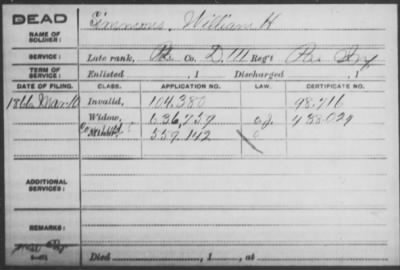 DEAD
NAME OF SOLDIER:
Simmons, William H
SERVICE:
Late rank, Pvt Co. D, 111 Reg't Pa Inf
TERM OF SERVICE:
Enlisted , 1 Discharged , 1
DATE OF FILING. CLASS. APPLICATION NO. LAW. CERTIFICATE NO.
1866 Mar 10 Invalid, 104,380 98,716
Widow, 636,759 438,029
Minor, 559,142
ADDITIONAL SERVICES:
REMARKS:
Died , 1 , at